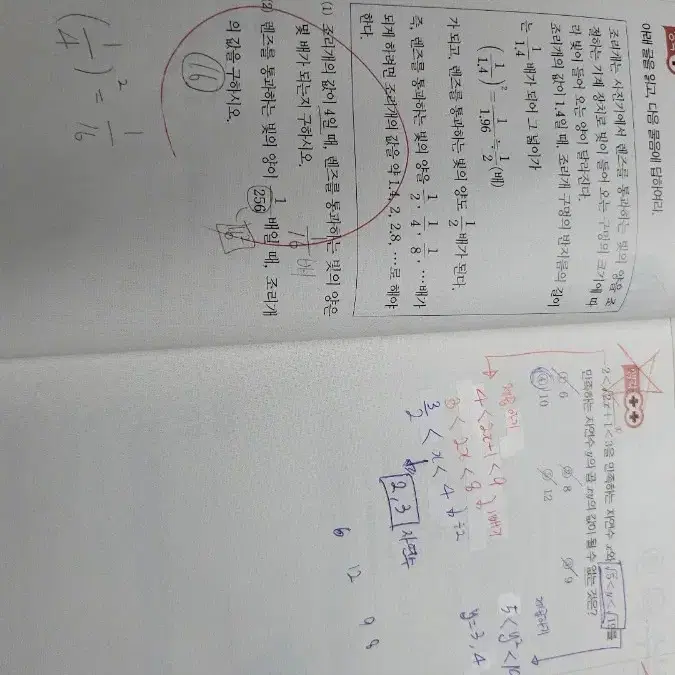 아래 글을 읽고, 다음 물음에 답하여라.
조리개는 사진기에서 렌즈를 통과하는 빛의 양을 조
절하는 기계 장치로 빛이 들어 오는 구멍의 크기에 따
라 빛이 들어 오는 양이 달라진다.
조리개의 값이 1.4일 때, 조리개 구멍의 반지름의 길이
는 1/1.4 배가 되어 그 넓이가
(1/1.4)² = 1/1.96 ≒ 1/2 (배)
가 되고, 렌즈를 통과하는 빛의 양도 1/2 배가 된다.
즉, 렌즈를 통과하는 빛의 양을 1/2, 1/4, 1/8, …배가
되게 하려면 조리개의 값을 약 1.4, 2, 2.8, …로 해야
한다.
(1) 조리개의 값이 4일 때, 렌즈를 통과하는 빛의 양은
몇 배가 되는지 구하시오.
1/16 배
(2) 렌즈를 통과하는 빛의 양이 1/256 배일 때, 조리개
의 값을 구하시오.
16
(16)
(1/4)² = 1/16
2<√2x+1<3을 만족하는 자연수 x와 √5<y<√19를
만족하는 자연수 y의 곱 xy의 값이 될 수 없는 것은?
① 6 ② 8 ③ 9
④ 10 ⑤ 12
제곱하기
4<2x+1<9
3<2x<8
3/2<x<4 ÷2
2, 3 자연수
제곱하기
y=3, 4
6 12 9 8